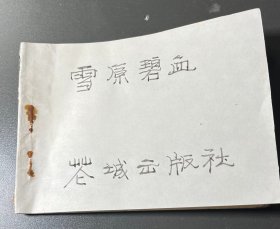 雪原碧血
苍城出版社